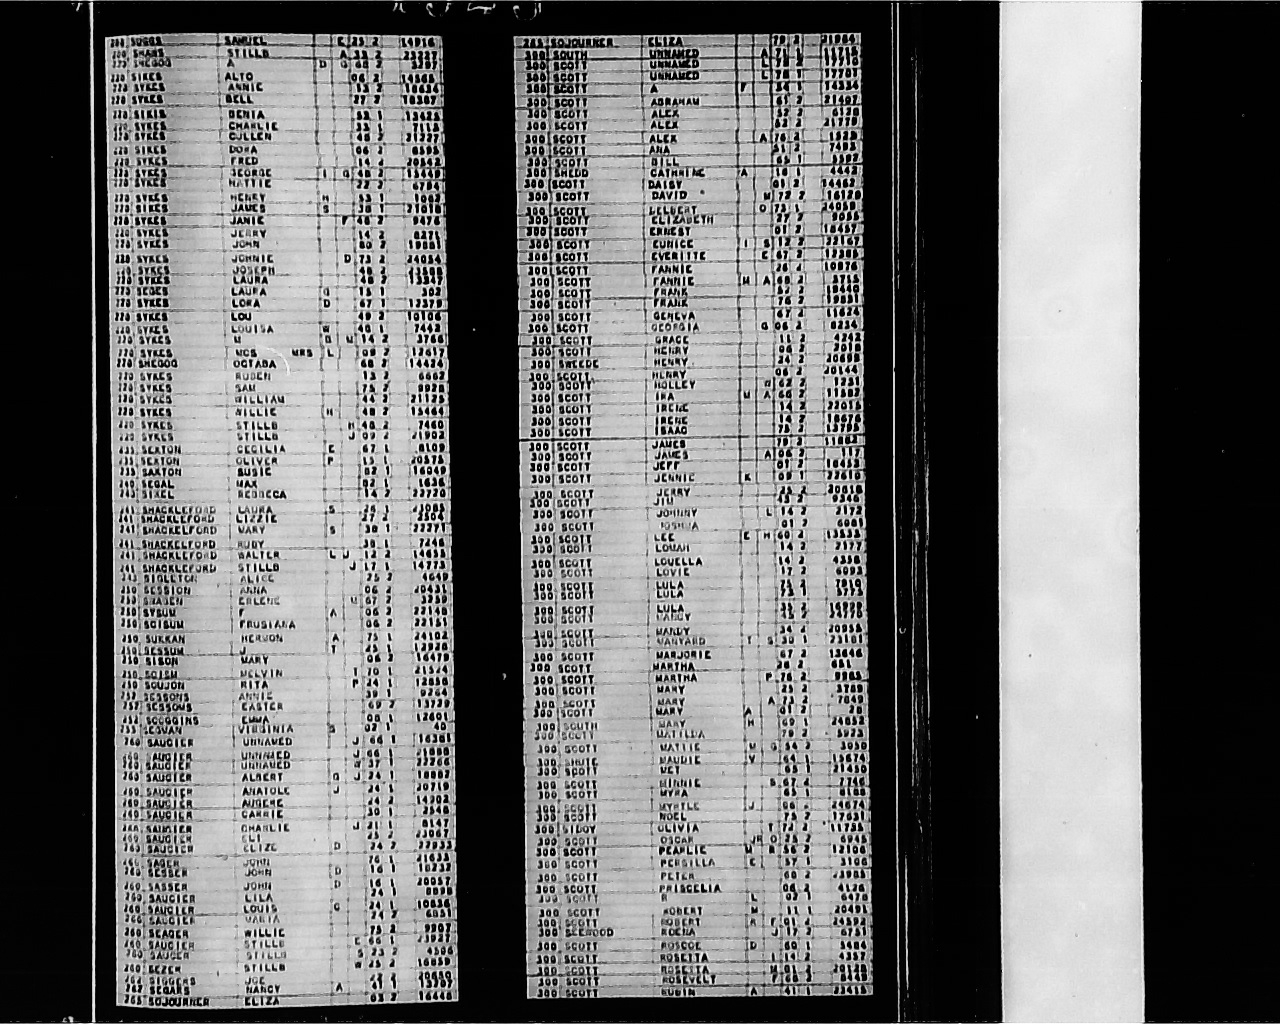 SUGGS SAMUEL E 25 2 14916
SHAWS STILLB A
SHEGOG A D G 68 2 5297
220 SIKES ALTO 06 2 14565
220 SYKES ANNIE 13 2 10634
220 SYKES BELL 27 2 18307
220 SIKIS DENIA 53 1 13625
220 SYKES CHARLIE 53 1 7113
220 SYKES CULLEN 46 2 21327
220 SIKES DORA 06 2 6595
220 SYKES FRED 14 2 20542
220 SYKES GEORGE I G 48 2 15449
220 SYKES HATTIE 22 2 6784
220 SYKES HENRY H 53 1 1062
220 SIKES JAMES S 38 1 21018
220 SYKES JANIE F 48 2 9476
220 SYKES JERRY 14 2 8271
220 SYKES JOHN 80 2 19881
220 SYKES JOHNIE D 73 2 24054
220 SYKES JOSEPH 48 2
220 SYKES LAURA 48 2 13347
220 SEGES LAURA G 15 1 302
220 SYKES LORA D 67 1 12379
220 SYKES LOU 49 2 10106
220 SYKES LOUISA W 40 1 7442
220 SYKES M B M 14 2 3766
220 SYKES MOS MRS L 09 2 12617
220 SHEGOG OCTABA 68 2 14424
220 SYKES RUBEN 13 2 6662
220 SYKES SAM 75 2 9928
220 SYKES WILLIAM 44 2 21125
220 SYKES WILLIE H 48 2 15464
220 SYKES STILLB H 48 2 7460
220 SYKES STILLB J 09 2 21902
235 SEXTON CECILIA E 67 1 8109
235 SEXTON OLIVER P 15 1 20575
235 SAXTON SUSIE 82 1 16049
240 SEGAL MAX 82 1 1636
243 SIKEL REBBECA 14 2 22720
241 SHACKLEFORD LAURA S 26 1 23085
241 SHACKLEFORD LIZZIE 27 2 2504
241 SHACKELFORD MARY S 38 1 22271
241 SHACKELFORD RUBY 38 1 7246
241 SHACKLEFORD WALTER L J 12 2 14655
241 SHACKLEFORD STILLB J 17 1 14773
243 SIGLETON ALICE 25 2 4649
250 SESSION ANNA 06 2 20435
250 SHASEN ERLENE M 67 2 3250
250 SYSUM F A 06 2 22148
250 SCISUM FRUSIANA 06 2 22151
250 SUKKAN HERMON A 75 1 24102
250 SESSUM J T 25 1 12926
250 SISON MARY 06 2 16479
250 SCISM MELVIN T 70 1 21524
250 SOUJON RITA P 24 1 12856
252 SESSONS ANNIE 39 1 9264
252 SESSOMS EASTER 69 2 13229
252 SCOGGINS EMMA 08 1 12601
255 SEGVAN VIRGINIA S 02 1 40
260 SAUCIER UNNAMED J 66 1 16361
260 SAUCIER UNNAMED J 66 1 21888
260 SAUCIER UNNAMED W 37 2 22766
260 SAUCIER ALBERT G J 24 1 18887
260 SAUCIER ANATOLE J 24 1 20719
260 SAUCIER AUGENE 24 2 14302
260 SAUCIER CARRIE 30 1 2548
260 SAUCIER CHARLIE J 21 1 8147
260 SAUCIER ELI 25 2 23067
260 SAUCIER ELIZE D 24 2 22935
260 SAGER JOHN 76 1 21633
260 SESSER JOHN D 16 1 10232
260 SASSER JOHN D 16 1 20057
260 SAUCIER LILA 24 1 8898
260 SAUCIER LOUIS G 24 1 10836
260 SAUCIER MARIA 24 2 6851
260 SEAGER WILLIE 75 2 9907
260 SAUCIER STILLB E 66 1 23927
260 SAUCER STILLB S 23 2 4596
260 SEZER STILLB W 25 2 16859
262 SIGGERS JOE 22 2 20650
262 SEGARS NANCY A 61 1 13707
265 SOJOURNER ELIZA 03 2 16448
265 SOJOURNER ELIZA 79 2 21964
300 SOUTH UNNAMED A 71 1 11715
300 SCOTT UNNAMED L 78 2 17710
300 SCOTT UNNAMED L 78 1 17701
300 SCOTT A F 34 1 14334
300 SCOTT ABRAHAM 61 2 21407
300 SCOTT ALEX 52 2 6128
300 SCOTT ALEX 52 2 21779
300 SCOTT ALEX A 76 2 1525
300 SCOTT ANA 51 2 7493
300 SCOTT BILL 65 1 5597
300 SHEDD CATHRINE A 18 1 4442
300 SCOTT DAISY 01 2 14462
300 SCOTT DAVID M 72 2 16128
300 SCOTT DELBERT O 73 1 24059
300 SCOTT ELIZABETH 27 2 9055
300 SCOTT ERNEST 01 2 18457
300 SCOTT EUNICE I S 12 2 22167
300 SCOTT EVERITTE E 67 2 12385
300 SCOTT FANNIE 26 2 10876
300 SCOTT FANNIE M A 68 2 3715
300 SCOTT FRANK 52 2
300 SCOTT FRANK 76 2 19831
300 SCOTT GENEVA 67 2 11624
300 SCOTT GEORGIA G 06 2 8234
300 SCOTT GRACE 11 2 9242
300 SCOTT HENRY 06 2 2018
300 SWEEDE HENRY 24 2 20695
300 SCOTT HENRY 06 2 20144
300 SCOTT HOLLEY G 62 2 1231
300 SCOTT IRA M A 66 2 11582
300 SCOTT IRENE 14 2 22015
300 SCOTT IRENE 14 2 18676
300 SCOTT ISAAC 75 2 13795
300 SCOTT JAMES 79 2 11882
300 SCOTT JAMES A 06 2 117
300 SCOTT JEFF 01 2 18452
300 SCOTT JENNIE K 09 1 22610
300 SCOTT JERRY 25 2 20618
300 SCOTT JIM 43 2 9346
300 SCOTT JOHNNY L 14 2 2172
300 SCOTT JOSHUA 01 2 6081
300 SCOTT LEE E H 60 2 13533
300 SCOTT LOUAH 14 2 2177
300 SCOTT LOUELLA 14 2 4356
300 SCOTT LOVIE 17 2 6093
300 SCOTT LULA 75 2 7910
300 SCOTT LULA 73 1 5773
300 SCOTT LULA 35 2 16920
300 SCOTT NANCY 45 2
300 SCOTT MANDY 34 2 20958
300 SCOTT MANYARD T S 30 1 23101
300 SCOTT MARJORIE 67 2 13646
300 SCOTT MARTHA 26 2 651
300 SCOTT MARTHA P 76 2 9985
300 SCOTT MARY 25 2 3789
300 SCOTT MARY A 73 2 7849
300 SCOTT MARY A 01 2 28
300 SOUTH MARY H 69 1 24852
300 SCOTT MATILDA 79 2 5923
300 SCOTT MATTIE M G 54 2 3050
300 SHUTE MAUDIE V 64 1 15674
300 SCOTT MET 65 1 21450
300 SCOTT MINNIE S 67 2 7746
300 SCOTT MYRA 65 1 8188
300 SCOTT MYRTLE J 06 24674
300 SCOTT NOEL 75 2 17631
300 SIDDY OLIVIA T 72 2 11735
300 SCOTT OSCAR JR O 25 2 6945
300 SCOTT PEARLIE M T 56 2 12106
300 SCOTT PERSILLA E 57 1 3166
300 SCOTT PETER 60 2 23985
300 SCOTT PRISCELIA 06 2 4126
300 SCOTT R L 02 1 6470
300 SCOTT ROBERT M 11 1 20491
300 SCOTT ROBERT R F 01 2 24592
300 SEEWOOD ROENA J 17 2 6731
300 SCOTT ROSCOE D 60 1 5484
300 SCOTT ROSETTA I 14 2 4357
300 SCOTT ROSETTA M 01 2 20128
300 SCOTT ROSEVELT F 68 2 3449
300 SCOTT RUBIN A 41 1 23415